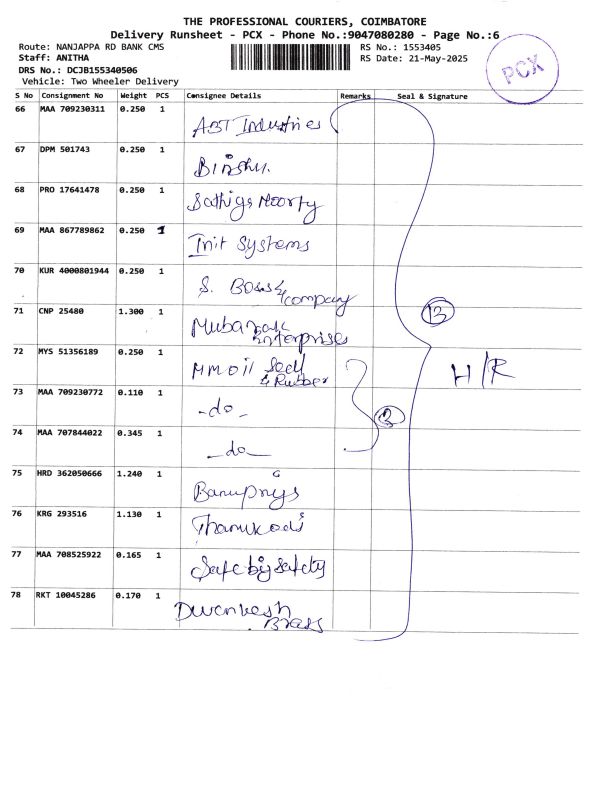 THE PROFESSIONAL COURIERS, COIMBATORE
Delivery Runsheet - PCX - Phone No.:9047080280 - Page No.:6
Route: NANJAPPA RD BANK CMS
RS No.: 1553405
Staff: ANITHA
RS Date: 21-May-2025
DRS No.: DCJB155340506
Vehicle: Two Wheeler Delivery
PCX
S No Consignment No Weight PCS Consignee Details Remarks Seal & Signature
66 MAA 709230311 0.250 1
ABT Industries
67 DPM 501743 0.250 1
68 PRO 17641478 0.250 1
Sathigs Moorty
69 MAA 867789862 0.250 1
Init Systems
70 KUR 4000801944 0.250 1
S. Boss &
company
71 CNP 25480 1.300 1
Mubarak
Enterprises
13
72 MYS 51356189 0.250 1
MM oil Seed
& Rubber
H/R
73 MAA 709230772 0.110 1
-do-
74 MAA 707844022 0.345 1
-do-
75 HRD 362050666 1.240 1
76 KRG 293516 1.130 1
Thanukodi
77 MAA 708525922 0.165 1
Safe by safety
78 RKT 10045286 0.170 1
Brass